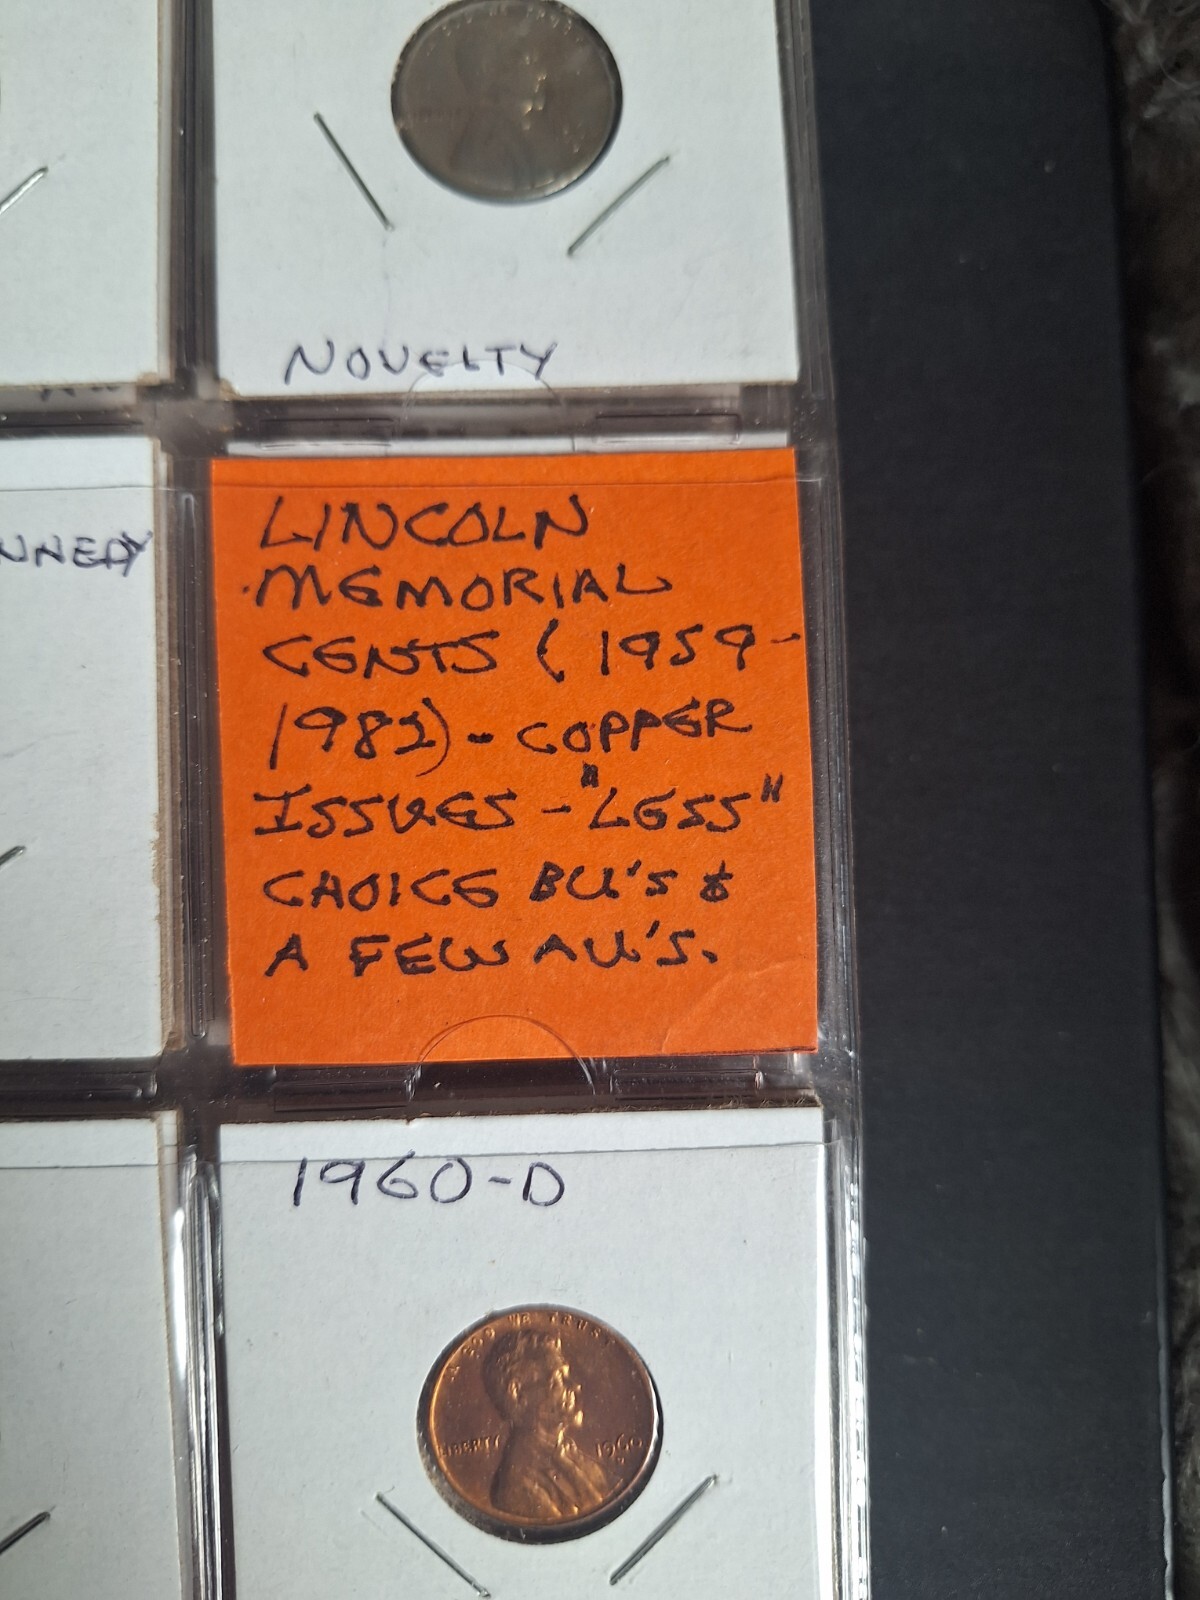 NOVELTY
NNEDY
LINCOLN
MEMORIAL
CENTS (1959-
1982) - COPPER
ISSUES - "LESS"
CHOICE BU'S &
A FEW AU'S.
1960-D
IN GOD WE TRUST
LIBERTY 1960
D